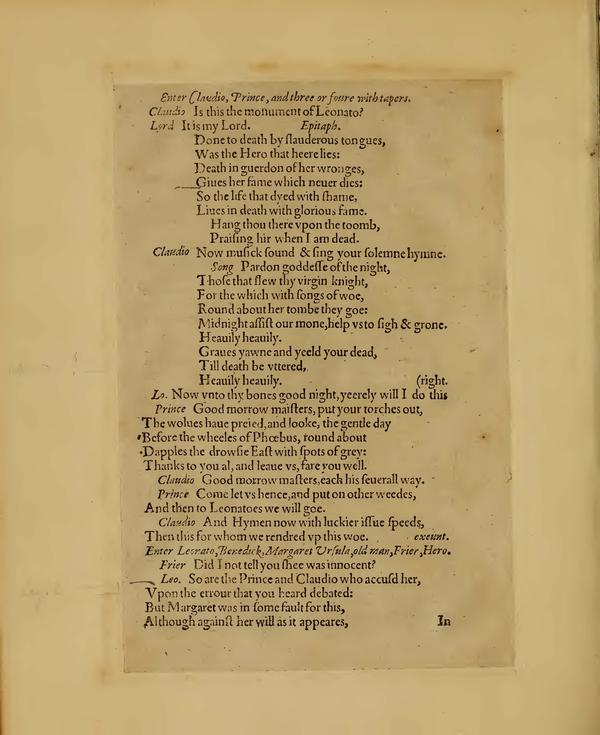 Enter Claudio, Prince, and three or foure with tapers.
Claudio Is this the monument of Leonato?
Lord It is my Lord. Epitaph.
Done to death by ſlauderous tongues,
Was the Hero that heere lies:
Death in guerdon of her wronges,
Giues her fame which neuer dies:
So the life that dyed with ſhame,
Liues in death with glorious fame.
Hang thou there vpon the toomb,
Praiſing hir when I am dead.
Claudio Now muſick ſound & ſing your ſolemne hymne.
Song Pardon goddeſſe of the night,
Thoſe that ſlew thy virgin knight,
For the which with ſongs of woe,
Round about her tombe they goe:
Midnight aſſiſt our mone, help vs to ſigh & grone.
Heauily heauily.
Graues yawne and yeeld your dead,
Till death be vttered,
Heauily heauily. (right.
Lo. Now vnto thy bones good night, yeerely will I do this
Prince Good morrow maiſters, put your torches out,
The wolues haue preied, and looke, the gentle day
Before the wheeles of Phœbus, round about
Dapples the drowſie Eaſt with ſpots of grey:
Thanks to you al, and leaue vs, fare you well.
Claudio Good morrow maſters, each his ſeuerall way.
Prince Come let vs hence, and put on other weedes,
And then to Leonatoes we will goe.
Claudio And Hymen now with luckier iſſue ſpeeds,
Then this for whom we rendred vp this woe. exeunt.
Enter Leonato, Benedick, Margaret Vrſula, old man, Frier, Hero.
Frier Did I not tell you ſhee was innocent?
Leo. So are the Prince and Claudio who accuſd her,
Vpon the errour that you heard debated:
But Margaret was in ſome fault for this,
Although againſt her will as it appeares, In